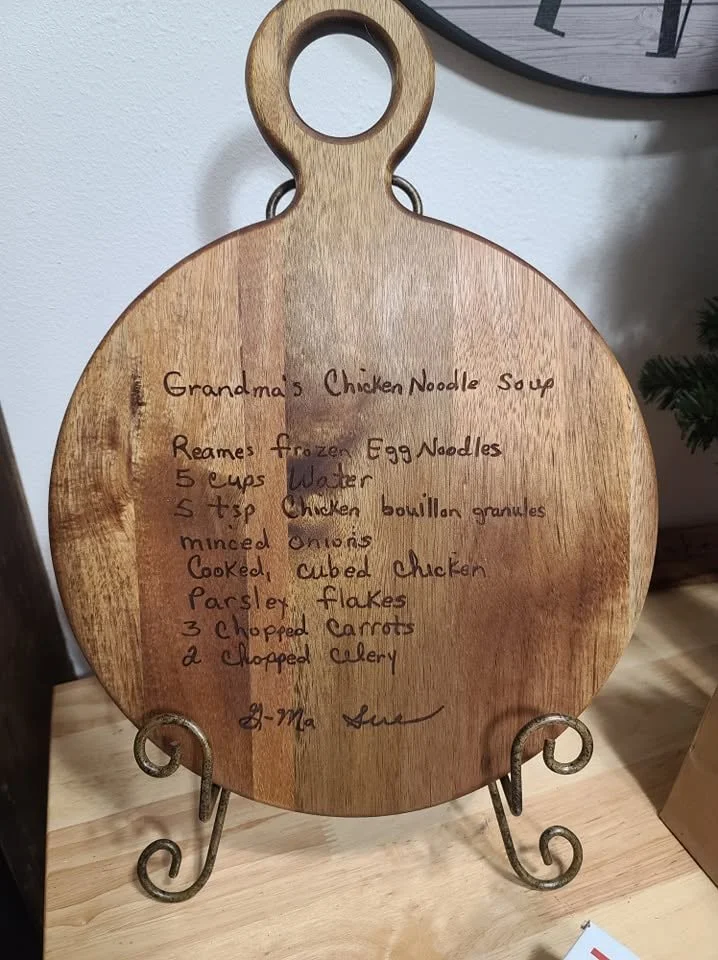 Grandma's Chicken Noodle Soup
Reames frozen Egg Noodles
5 cups Water
5 tsp Chicken bouillon granules
minced onions
Cooked, cubed chicken
Parsley flakes
3 chopped Carrots
2 chopped celery
G-Ma Sue